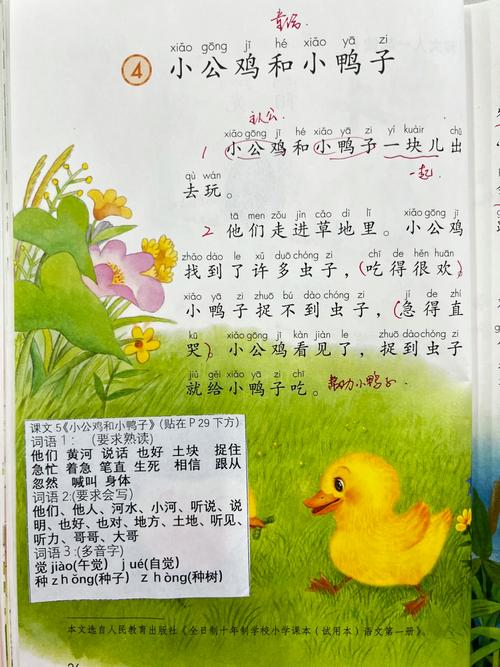 xiǎo gōng jī hé xiǎo yā zi
4 小公鸡和小鸭子
主人公
xiǎo gōng jī hé xiǎo yā zi yí kuàir chū
1 小公鸡和小鸭子一块儿出
一起
qù wán
去玩。
tā men zǒu jìn cǎo dì lǐ xiǎo gōng jī
2 他们走进草地里。小公鸡
zhǎo dào le xǔ duō chóng zi chī de hěn huān
找到了许多虫子，(吃得很欢)
xiǎo yā zi zhuō bú dào chóng zi jí de zhí
小鸭子捉不到虫子，(急得直
kū xiǎo gōng jī kàn jiàn le zhuō dào chóng zi
哭)。小公鸡看见了，捉到虫子
jiù gěi xiǎo yā zi chī
就给小鸭子吃。 帮助小鸭子
课文5《小公鸡和小鸭子》(贴在P29下方)
词语1： (要求熟读)
他们 黄河 说话 也好 土块 捉住
急忙 着急 笔直 生死 相信 跟从
忽然 喊叫 身体
词语2:(要求会写)
他们、他人、河水、小河、听说、说
明、也好、也对、地方、土地、听见、
听力、哥哥、大哥
词语3:(多音字)
觉jiào(午觉) jué(自觉)
种zhǒng(种子) zhòng(种树)
本文选自人民教育出版社《全日制十年制学校小学课本（试用本）语文第一册》。